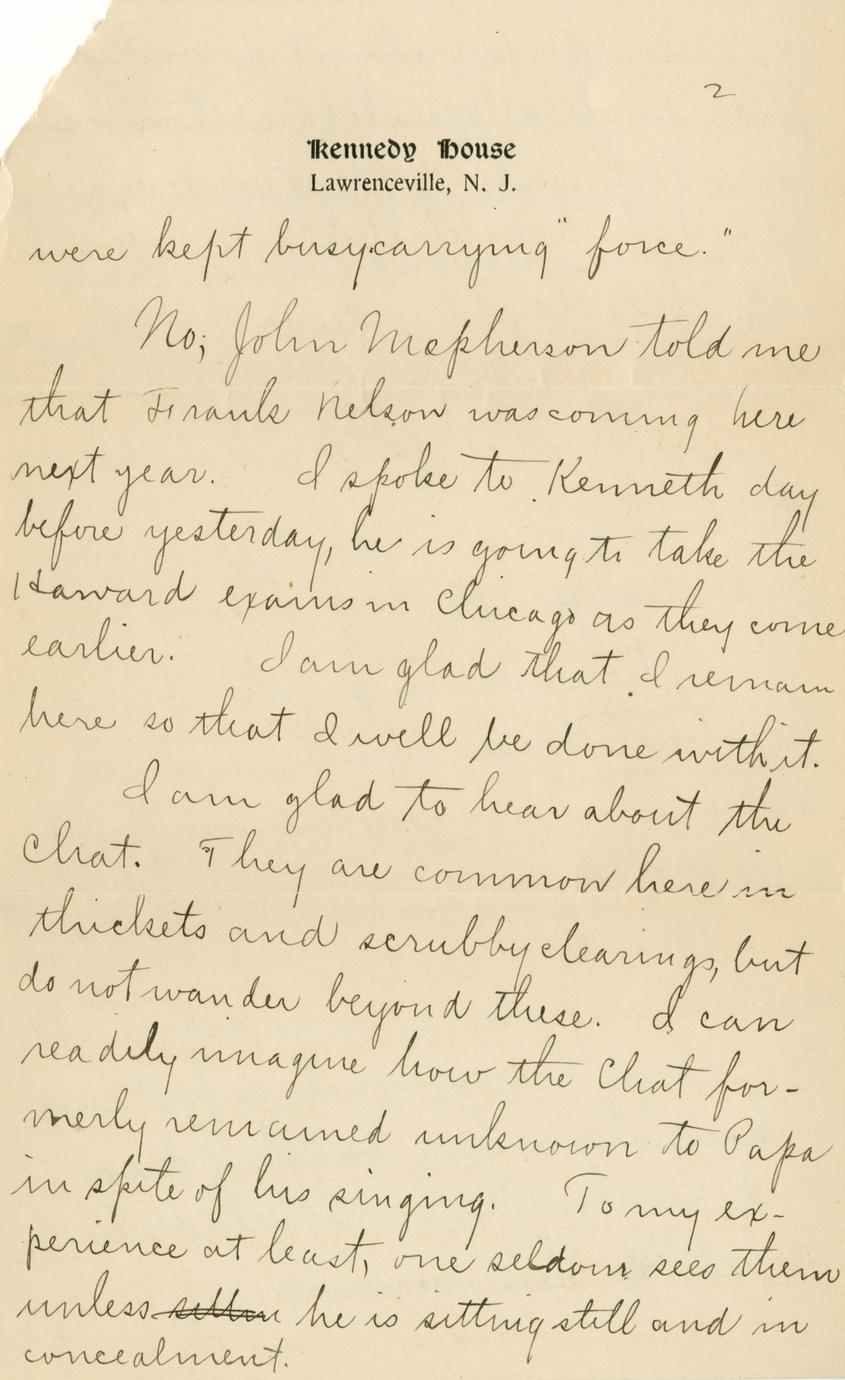 2
Kennedy House
Lawrenceville, N. J.
were kept busy carrying "force."
No; John Mcpherson told me
that Frank Nelson was coming here
next year. I spoke to Kenneth day
before yesterday, he is going to take the
Harvard exams in Chicago as they come
earlier. I am glad that I remain
here so that I will be done with it.
I am glad to hear about the
Chat. They are common here in
thickets and scrubby clearings, but
do not wander beyond these. I can
readily imagine how the Chat for-
merly remained unknown to Papa
in spite of his singing. To my ex-
perience at least, one seldom sees them
unless he is sitting still and in
concealment.